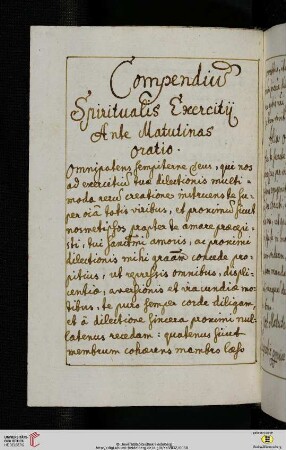 Compendiũ
Spiritualis Exercitij
Ante Matutinas
oratio.
Omnipotens sempiterne Deus, qui nos
ad exercitiũ tuæ dilectionis multi-
moda rerũ creatione instruens te su-
per oĩa totis viribus, et proximũ sicut
nosmetipsos propter te amare præcepi-
sti, tui sanctissimi amoris, ac proximi
dilectionis mihi grãam concede pro-
pitius, ut repressis omnibus, displi-
centiæ, aversionis et iracundiæ mo-
tibus, te puro semper corde diligam,
et à dilectione sincera proximi nul-
latenus recedam: quatenus sicut
membrum cohærens membro læso